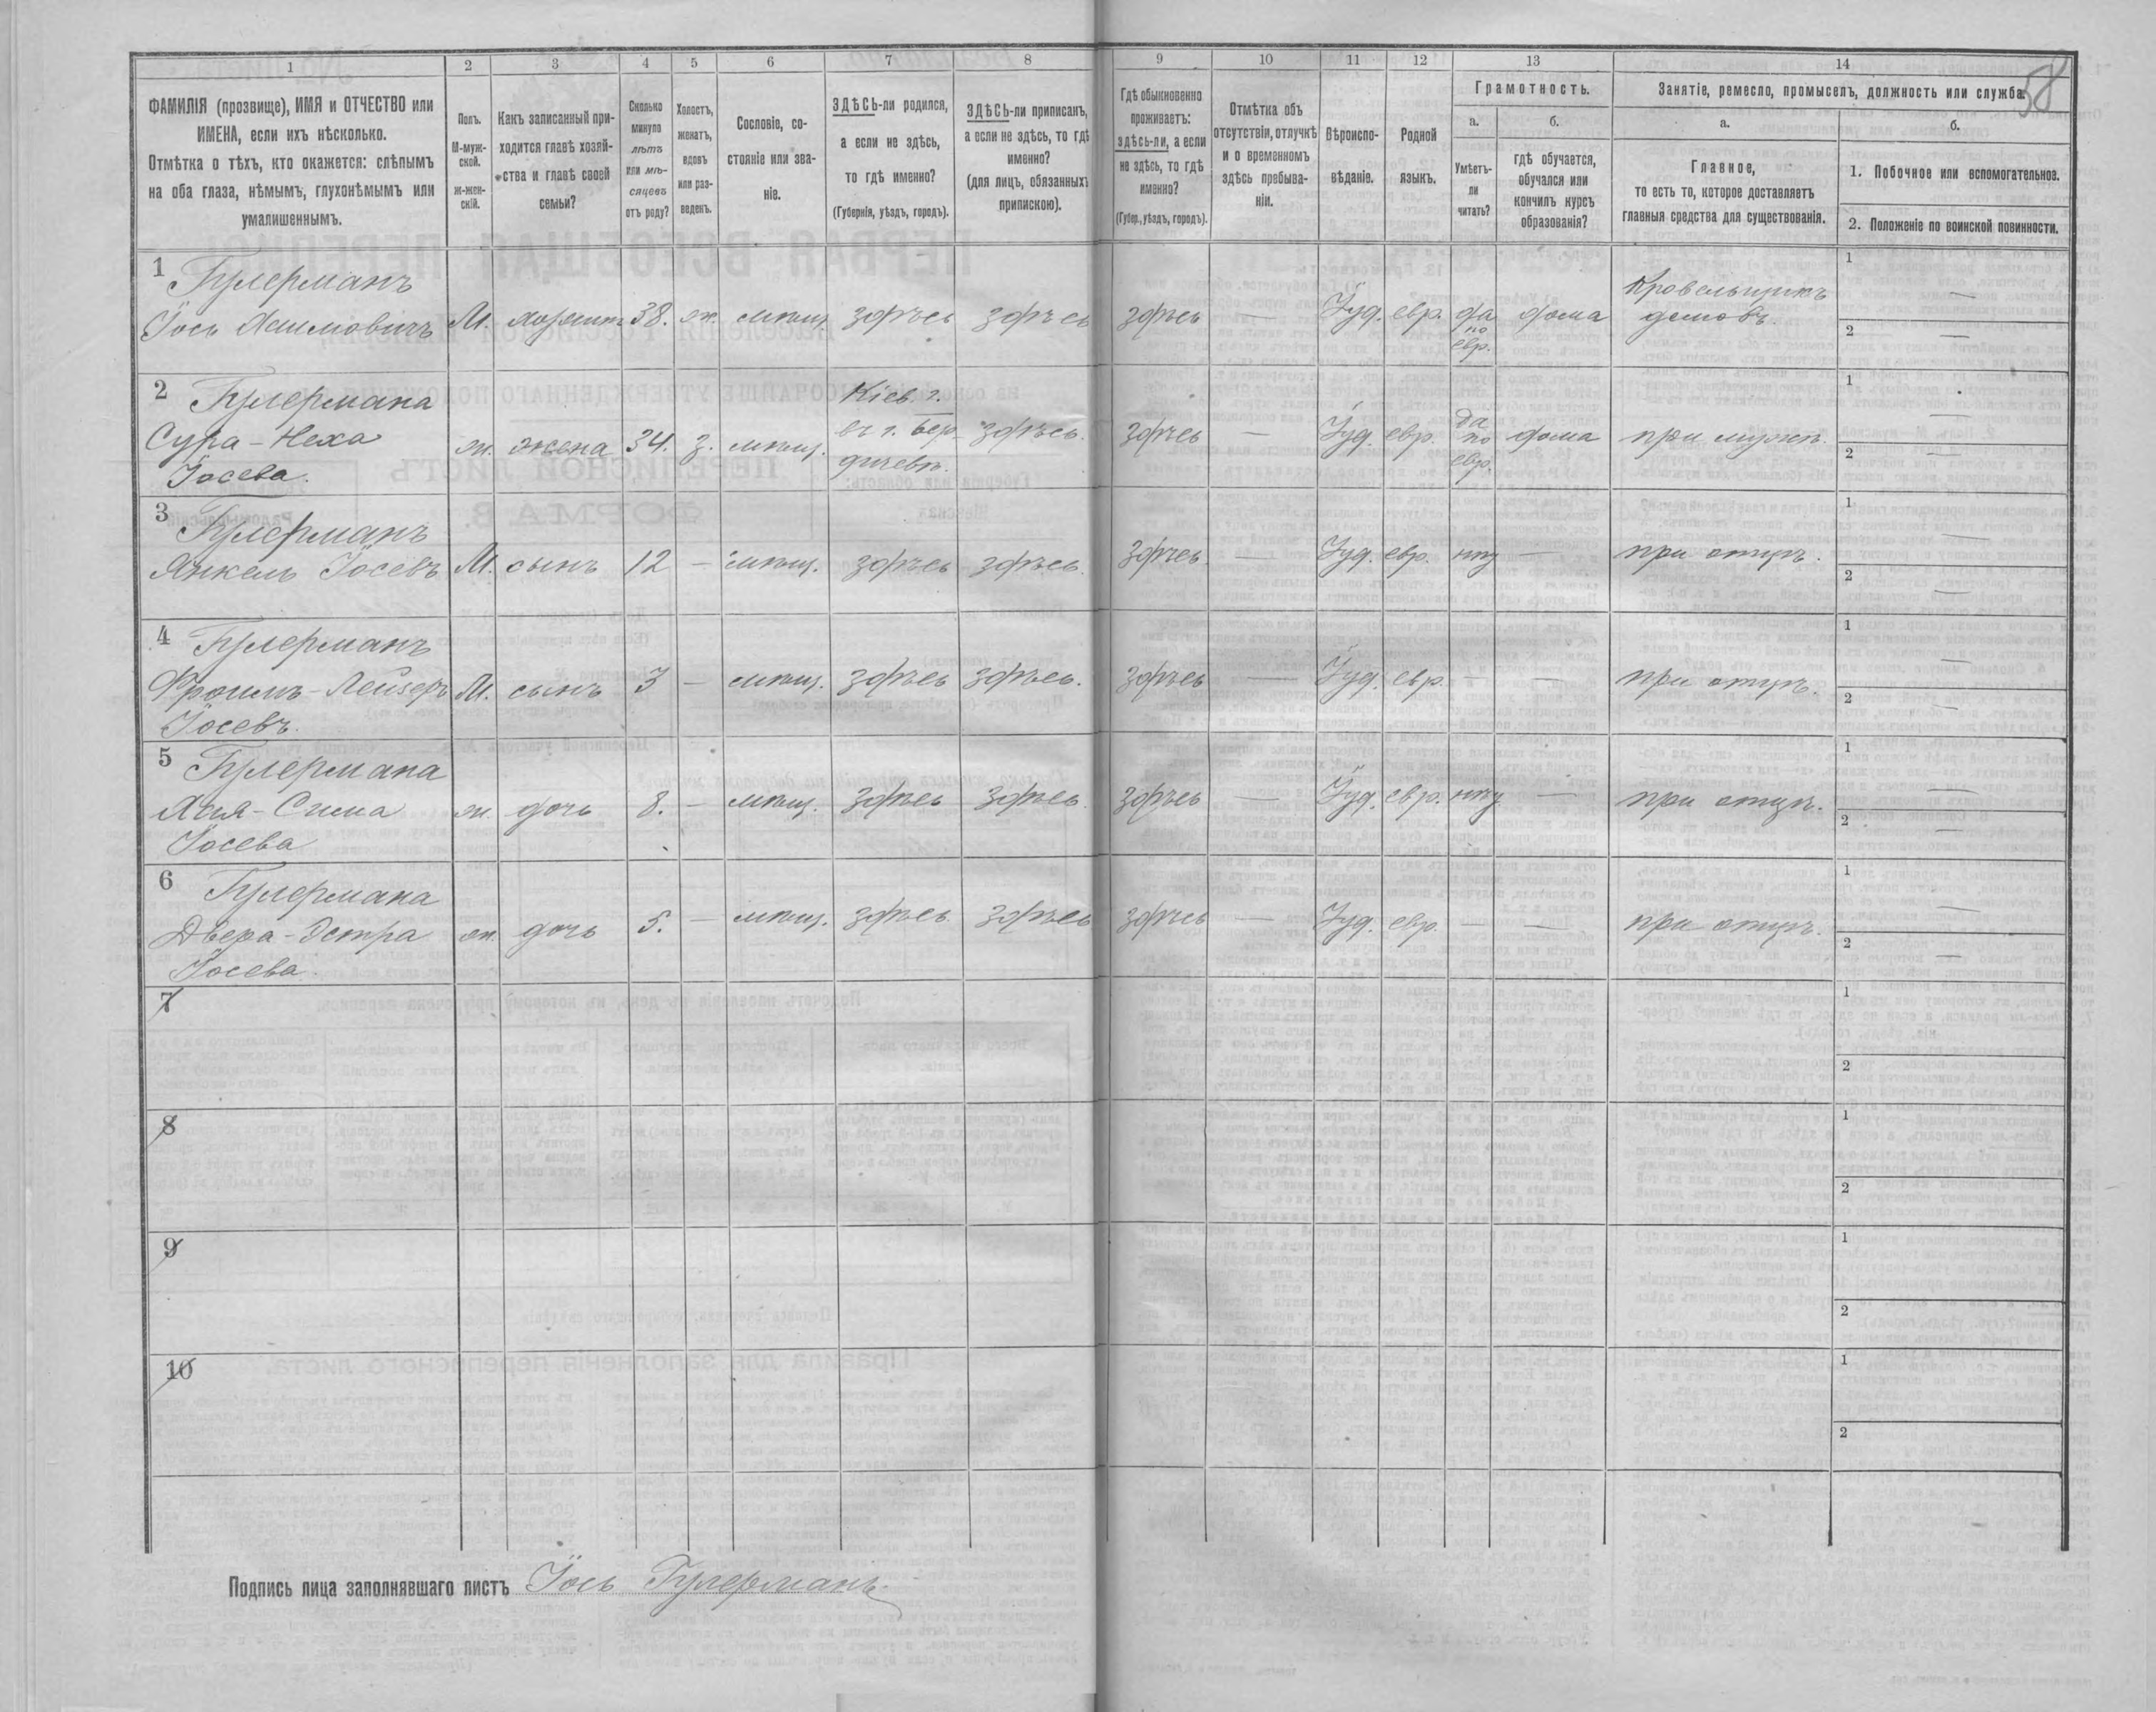 58
1 2 3 4 5 6 7 8 9 10 11 12 13 14
ФАМИЛІЯ (прозвище), ИМЯ и ОТЧЕСТВО или
ИМЕНА, если ихъ нѣсколько.
Отмѣтка о тѣхъ, кто окажется: слѣпымъ
на оба глаза, нѣмымъ, глухонѣмымъ или
умалишеннымъ.
Полъ.
М-муж-
ской.
Ж-жен-
скій.
Какъ записанный при-
ходится главѣ хозяй-
ства и главѣ своей
семьи?
Сколько
минуло
лѣтъ
или мѣ-
сяцевъ
отъ роду?
Холостъ,
женатъ,
вдовъ
или раз-
веденъ.
Сословіе, со-
стояніе или зва-
ніе.
ЗДѢСЬ-ли родился,
а если не здѣсь,
то гдѣ именно?
(Губернія, уѣздъ, городъ).
ЗДѢСЬ-ли приписанъ,
а если не здѣсь, то гдѣ
именно?
(для лицъ, обязанныхъ
припискою).
Гдѣ обыкновенно
проживаетъ:
здѣсь-ли, а если
не здѣсь, то гдѣ
именно?
(Губер., уѣздъ, городъ).
Отмѣтка объ
отсутствіи, отлучкѣ
и о временномъ
здѣсь пребыва-
ніи.
Вѣроиспо-
вѣданіе.
Родной
языкъ.
Грамотность.
а.
Умѣетъ-
ли
читать?
б.
гдѣ обучается,
обучался или
кончилъ курсъ
образованія?
Занятіе, ремесло, промыселъ, должность или служба.
а.
Главное,
то есть то, которое доставляетъ
главныя средства для существованія.
б.
1. Побочное или вспомогательное.
2. Положеніе по воинской повинности.
1 Гулерманъ
Іось Хаимовичъ М. хозяинъ 38. ж. мѣщ. здѣсь здѣсь здѣсь — Іуд. евр. да по евр. дома Кровельщикъ домовъ. 1 — 2 —
2 Гулермана
Сура-Неха
Іосева. ж. жена 34. з. мѣщ. Кіев. г. въ г. Бер-дичевѣ. здѣсь. здѣсь — Іуд. евр. да по евр. дома при мужѣ. 1 — 2 —
3 Гулерманъ
Янкель Іосевъ М. сынъ 12 — мѣщ. здѣсь здѣсь. здѣсь. — Іуд. евр. нѣт — при отцѣ. 1 — 2 —
4 Гулерманъ
Фроимъ-Лейзеръ
Іосевъ. М. сынъ 3 — мѣщ. здѣсь здѣсь. здѣсь — Іуд. евр. — — при отцѣ. 1 — 2 —
5 Гулермана
Хая-Сима
Іосева ж. дочь 8. — мѣщ. здѣсь здѣсь. здѣсь — Іуд. евр. нѣт — при отцѣ. 1 — 2 —
6 Гулермана
Двера-Эстра
Іосева. ж. дочь 5. — мѣщ. здѣсь. здѣсь здѣсь — Іуд. евр. — — при отцѣ. 1 — 2 —
7 1 2
8 1 2
9 1 2
10 1 2
Подпись лица заполнявшаго листъ Іось Гулерманъ